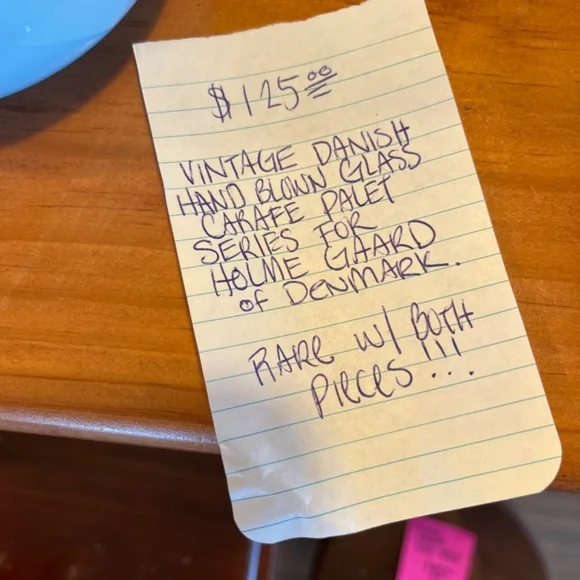 $125.00
VINTAGE DANISH
HAND BLOWN GLASS
CARAFE PALET
SERIES FOR
HOLME GAARD
of DENMARK.
RARE W/ BOTH
PIECES !!!